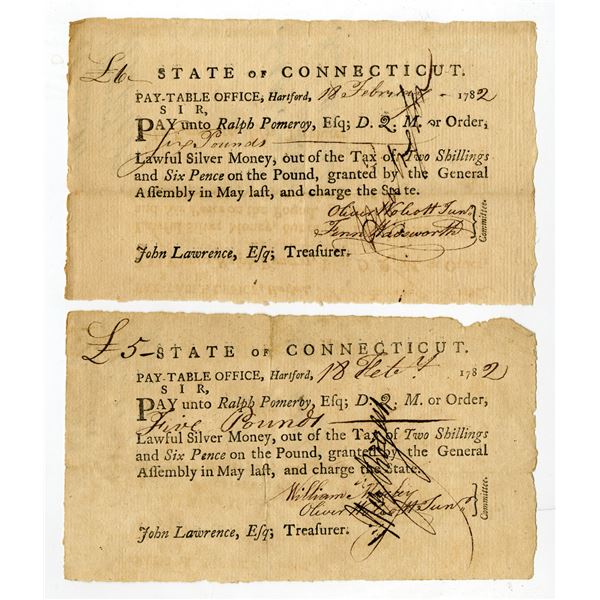 £6– STATE OF CONNECTICUT.
PAY-TABLE OFFICE, Hartford, 18 February – 1782
SIR,
PAY unto Ralph Pomeroy, Esq; D. Q. M. or Order,
Six Pounds
Lawful Silver Money, out of the Tax of Two Shillings
and Six Pence on the Pound, granted by the General
Assembly in May last, and charge the State.
Oliver Wolcott Junr
Fenn Wadsworth } Committee.
John Lawrence, Esq; Treasurer.
£5– STATE OF CONNECTICUT.
PAY-TABLE OFFICE, Hartford, 18 Feby 1782
SIR,
PAY unto Ralph Pomeroy, Esq; D. Q. M. or Order,
Five Pounds
Lawful Silver Money, out of the Tax of Two Shillings
and Six Pence on the Pound, granted by the General
Assembly in May last, and charge the State.
William Moseley
Oliver Wolcott Junr } Committee.
John Lawrence, Esq; Treasurer.